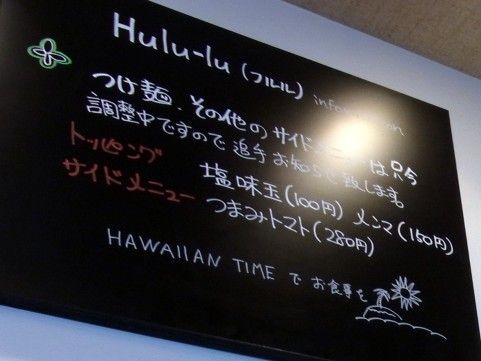 Hulu-lu (フルル) information
つけ麺、その他のサイドメニューは只今
調整中ですので追手お知らせ致します。
トッピング 塩味玉(100円) メンマ(150円)
サイドメニュー つまみトマト(280円)
HAWAIIAN TIME で お食事を